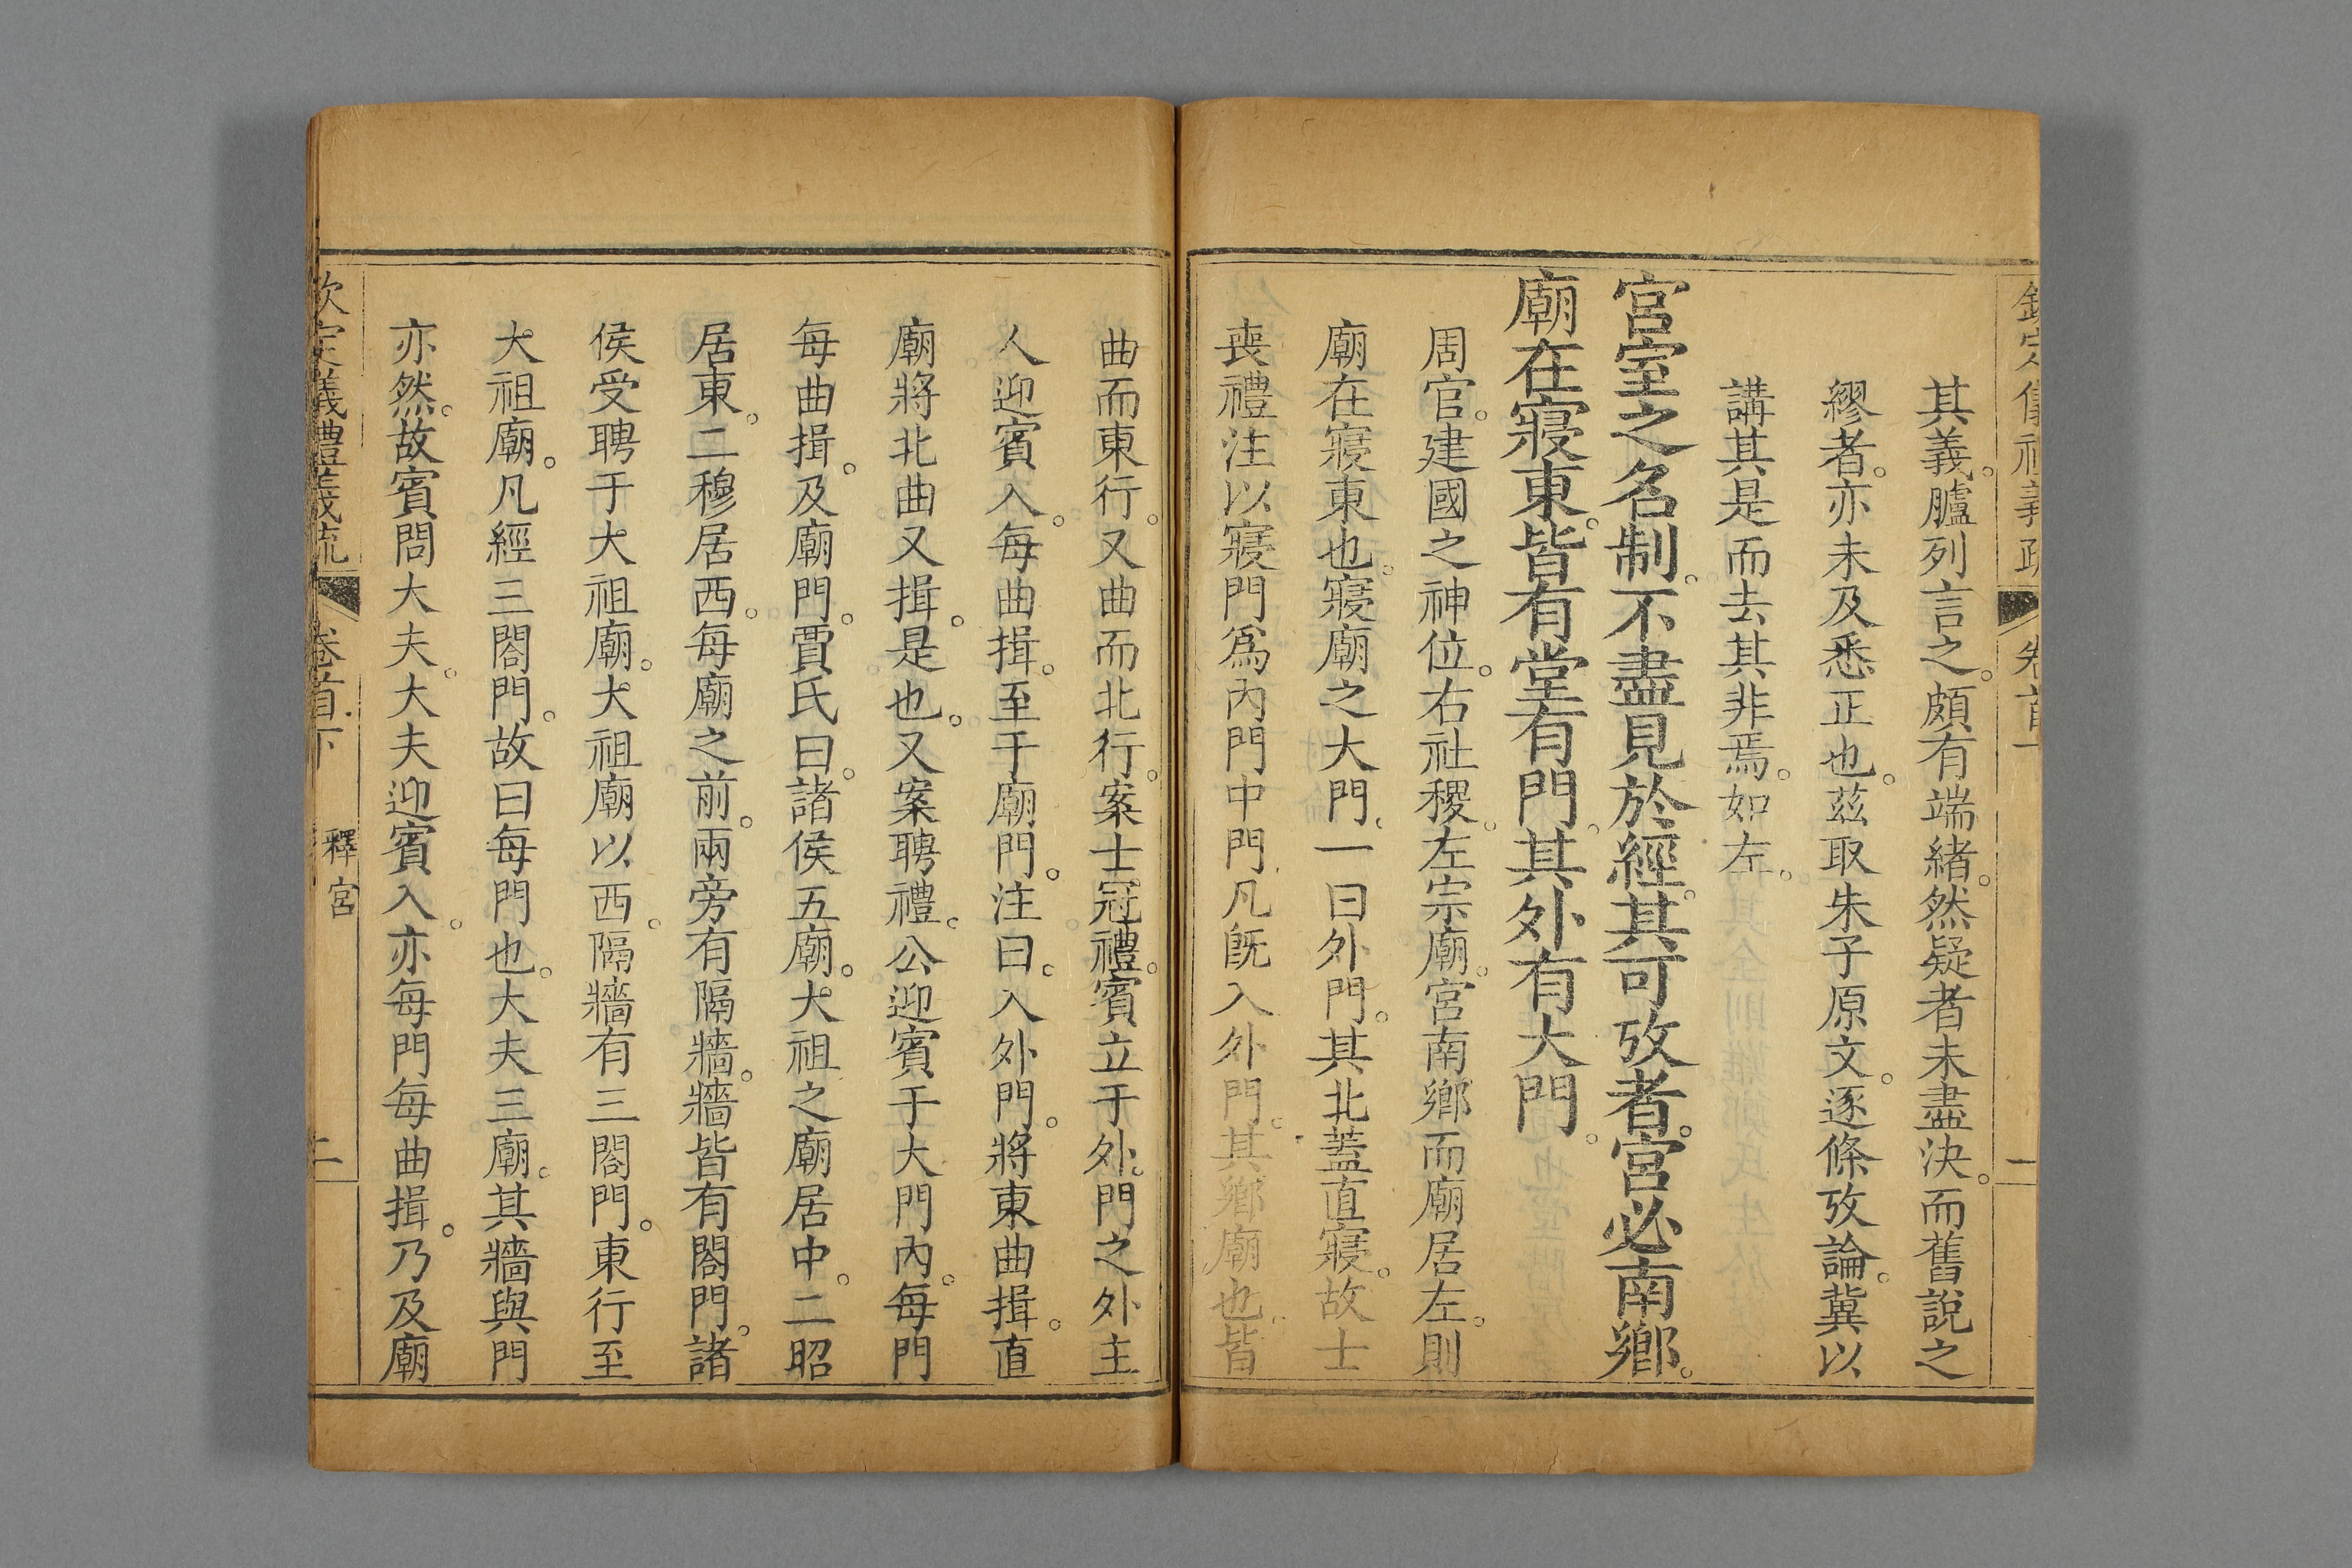 其義。臚列言之。頗有端緒。然疑者未盡決。而舊說之
繆者。亦未及悉正也。茲取朱子原文。逐條攷論。冀以
講其是而去其非焉。如左。
宮室之名制。不盡見於經。其可攷者。宮必南鄉。
廟在寢東。皆有堂有門。其外有大門。
周官。建國之神位。右社稷。左宗廟。宮南鄉而廟居左。則
廟在寢東也。寢廟之大門。一曰外門。其北蓋直寢。故士
喪禮注以寢門爲內門中門。凡旣入外門。其鄉廟也。皆
曲而東行。又曲而北行。案士冠禮。賓立于外門之外。主
人迎賓入。每曲揖。至于廟門。注曰。入外門。將東曲揖。直
廟將北曲又揖。是也。又案聘禮。公迎賓于大門內。每門
每曲揖。及廟門。賈氏曰。諸侯五廟。大祖之廟居中。二昭
居東。二穆居西。每廟之前。兩旁有隔牆。牆皆有閤門。諸
侯受聘于大祖廟。大祖廟以西。隔牆有三閤門。東行至
大祖廟。凡經三閤門。故曰每門也。大夫三廟。其牆與門
亦然。故賓問大夫。大夫迎賓入。亦每門每曲揖。乃及廟
欽定儀禮義疏
卷首下
釋宮
二